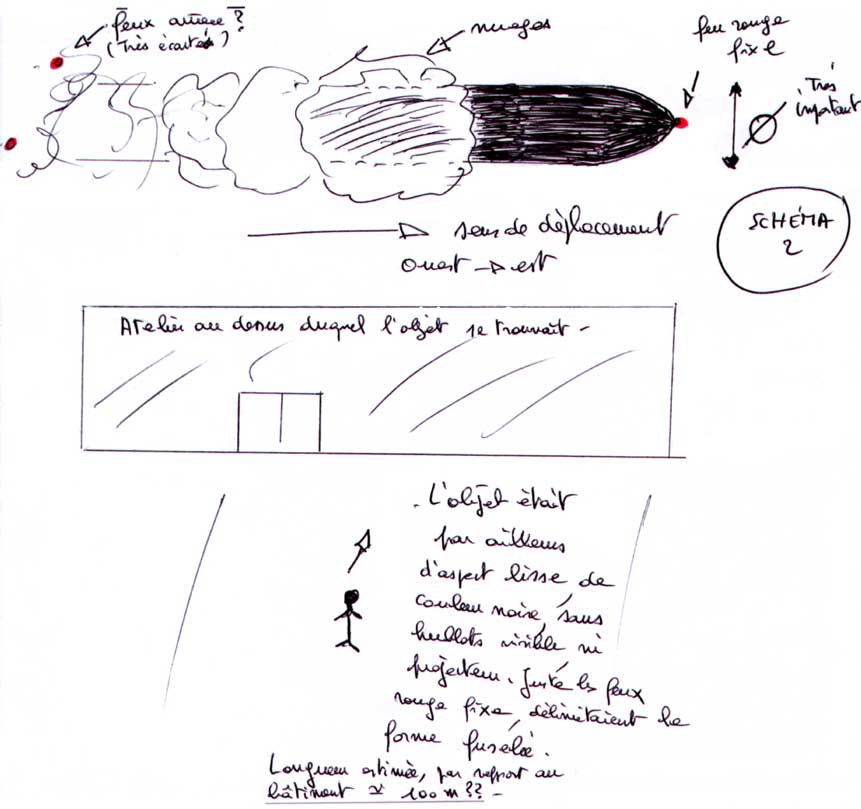 Feux arrière ?
(Très écartés)?
nuages
feu rouge
fixe
Très
important
sens de déplacement
Ouest → est
SCHÉMA
2
Atelier au dessus duquel l'objet se trouvait -
. L'objet était
par ailleurs
d'aspect lisse de
couleur noire, sans
hublots visible ni
projecteur. Juste les feux
rouge fixe, délimitaient la
forme fuselée.
Longueur estimée, par rapport au
bâtiment ≃ 100 m ?? -